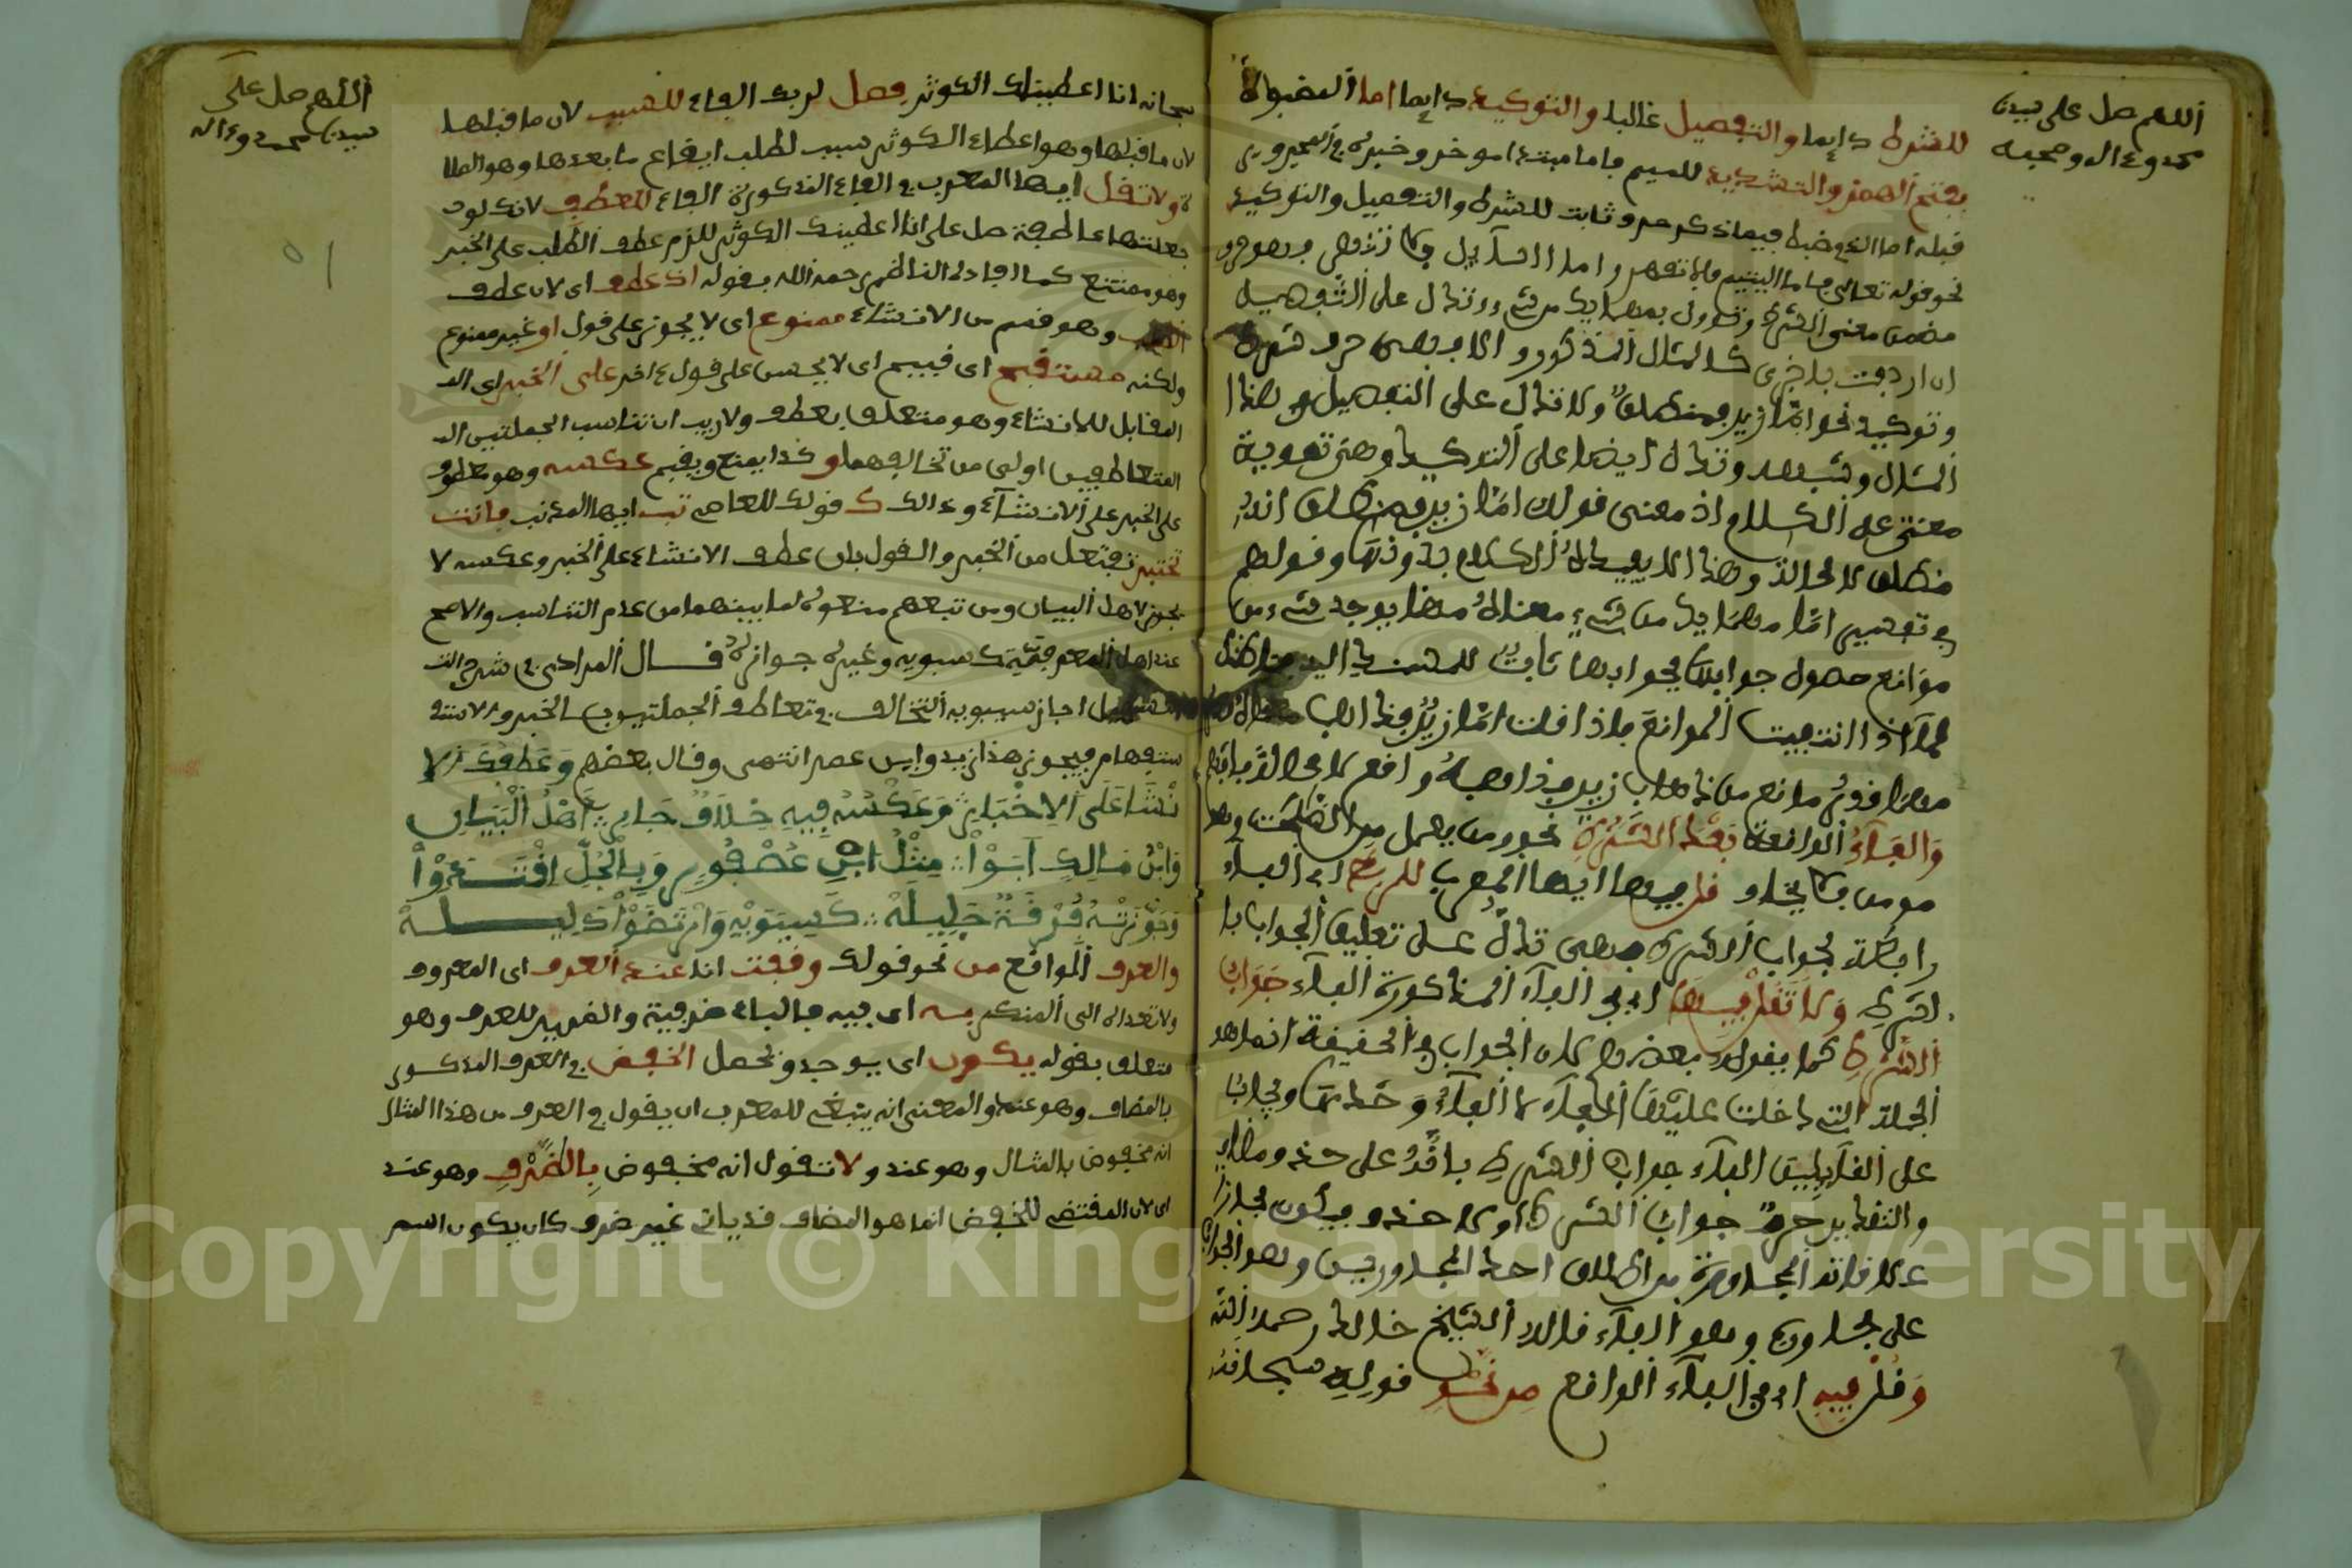 اللهم صل على سيدنا
محمد وءاله وصحبه
للشرط دايما والتفصيل غالبا والتوكيد دايما اما المضبوطة
بفتح الهمز والتشديد للميم فاما مبتدا موخر وخبره في المجرور
قبله اما الذي وضبط فيما ذكر حرف ثابت للشرط والتفصيل والتوكيد
نحو قوله تعالى فاما اليتيم فلا تقهر واما السآيل فلا تنهر فهو حرف
مضمن معنى الشرط وتؤول بمهما يك من شيء وتدل على التفصيل
ان اردفت باخرى كالمثال المذكور والا فهي حرف شرط
وتوكيد نحو امّا زيد فمنطلق ولا تدل على التفصيل في هذا
المثال وشبهه وتدل ايضا على التوكيد وهي تقوية
معنى الكلام اذ معنى قولك امّا زيد فمنطلق انه
منطلق لا محالة وهذا لا يفيده الكلام بدونها وقولهم
في تفسير امّا مهما يك من شيء معناه مهما يوجد شيء من
موانع حصول جوابها فجوابها ثابت
اذا انتفت الموانع فاذا قلت امّا زيد فذاهب
مهما فرض مانع من ذهاب زيد فذهابه واقع لا محالة
والفآء الواقعة بعد الشرط نحو ومن يعمل من الصالحت وهو
مومن فلا يخاف قل فيها ايها المعرب للربط اي الفآء
رابطة لجواب الشرط فهي تدل على تعليق الجواب با
لشرط ولا تقل فيها اي في الفآء المذكورة الفآء جواب
الشرط كما يقوله بعضهم لان الجواب في الحقيقة انما هو
الجملة التي دخلت عليها الفآء لا الفآء وحدها ويجاب
على القآيلين الفآء جواب الشرط باقدُ على حذف مضاف
والتقدير حرف جواب الشرط او لا حذف ويكون مجازا
علاقته المجاورة من اطلاق احد المجاورين وهو الجواب
على مجاوره وهو الفآء قاله الشيخ خالد رحمه الله
وقل فيه اي في الفآء الواقع من نحو قوله سبحانه
اللهم صل على
سيدنا محمد وءاله
سبحانه انا اعطيناك الكوثر فصل لربك الفاء للسبب لان ما قبلها
لان ما قبلها وهو اعطاء الكوثر سبب لطلب ايقاع ما بعدها وهو الصلا
ة ولا تقل ايها المعرب في الفاء المذكورة الفاء للعطف لانك لو
جعلتها عاطفة صل على انا اعطينك الكوثر للزم عطف الطلب على الخبر
وهو ممتنع كما افاده الناظم رحمه الله بقوله اذ عطف اي لان عطف
الطلب وهو قسم من الانشاء ممنوع اي لا يجوز على قول او غير ممنوع
ولكنه مستقبح اي قبيح اي لا يحسن على قول ءاخر على الخبر اي الـ
المقابل للانشاء وهو متعلق بعطف ولا ريب ان تناسب الجملتين الـ
المتعاطفين اولى من تخالفهما وكذا يمنع ويقبح عكسه وهو عطف
على الخبر على الانشآء وذالك كقولك للعاصي تب ايها المذنب فانت
تختبر تفتعل من الخبر والقول بان عطف الانشاء على الخبر وعكسه لا
يجوز لاهل البيان ومن تبعهم منعوه لما بينهما من عدم التناسب والاصح
عند اهل المعرفة كسبويه وغيره جوازه قال المرادي في شرح التـ
اجاز سيبويه التخالف في تعاطف الجملتين بالخبر والاستـ
ستفهام فيجوز هذا زيد وابن عمر انتهى وقال بعضهم وَعَطْفُكَ الا
نْشَا عَلَى الاِخْبَارِ وَعَكْسُهُ فِيهِ خِلَافٌ جَارِ ؞ أَهْلُ الْبَيَانِ
وَابْنُ مَالِكٍ أَبَوْا ؞ مِثْلُ ابْنِ عُصْفُورٍ وَبِالْجُلِّ اقْتَدَوْا
وَجَوَّزَتْهُ فُرْقَةٌ جَلِيلَهْ ؞ كَسِيبَوَيْهِ وَارْتَضَوْا دَلِيلَهْ
والعرف الواقع من نحو قولك وقفت انا عند العرف اي المعروف
ولا تعداه الى المنكر به اي فيه فالباء ظرفية والضمير للعرف وهو
متعلق بقوله يكون اي يوجد ويحصل الخفض في العرف المذكور
بالمضاف وهو عند والمعنى انه ينبغي للمعرب ان يقول في العرف من هذا المثال
انه مخفوض بالمثال وهو عند ولا تقول انه مخفوض بالظرف وهو عند
اي لان المقتضي للخفض انما هو المضاف قد ياتي غير ظرف كان يكون اسم
Copyright © King Saud University